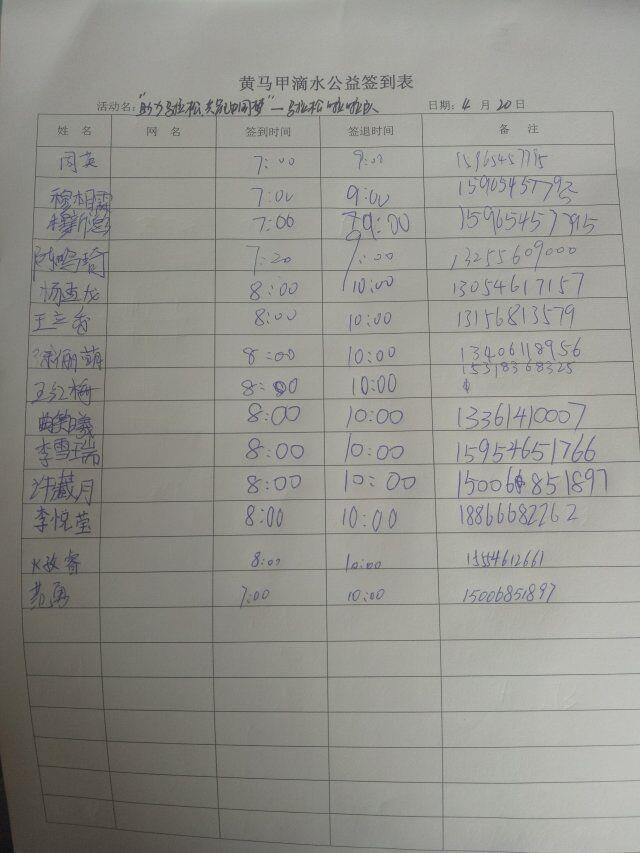 黄马甲滴水公益签到表
活动名："助力马拉松,共筑中国梦"—马拉松啦啦队 日期: 4 月 20 日
姓 名 网 名 签到时间 签退时间 备 注
闫英 7:00 9:00 15965457795
穆相霈 7:00 9:00 15965457795
7:00 9:00 15965457795
7:20 9:00 13255609000
杨查龙 8:00 10:00 13054617157
王立香 8:00 10:00 13156813579
8:00 10:00 13406118956
王红梅 8:00 10:00 15318368325
8:00 10:00 13361410007
李雪瑞 8:00 10:00 15954651766
许藏月 8:00 10:00 15006851897
李悦莹 8:00 10:00 18866682262
8:00 10:00 13554612661
7:00 10:00 15006851897